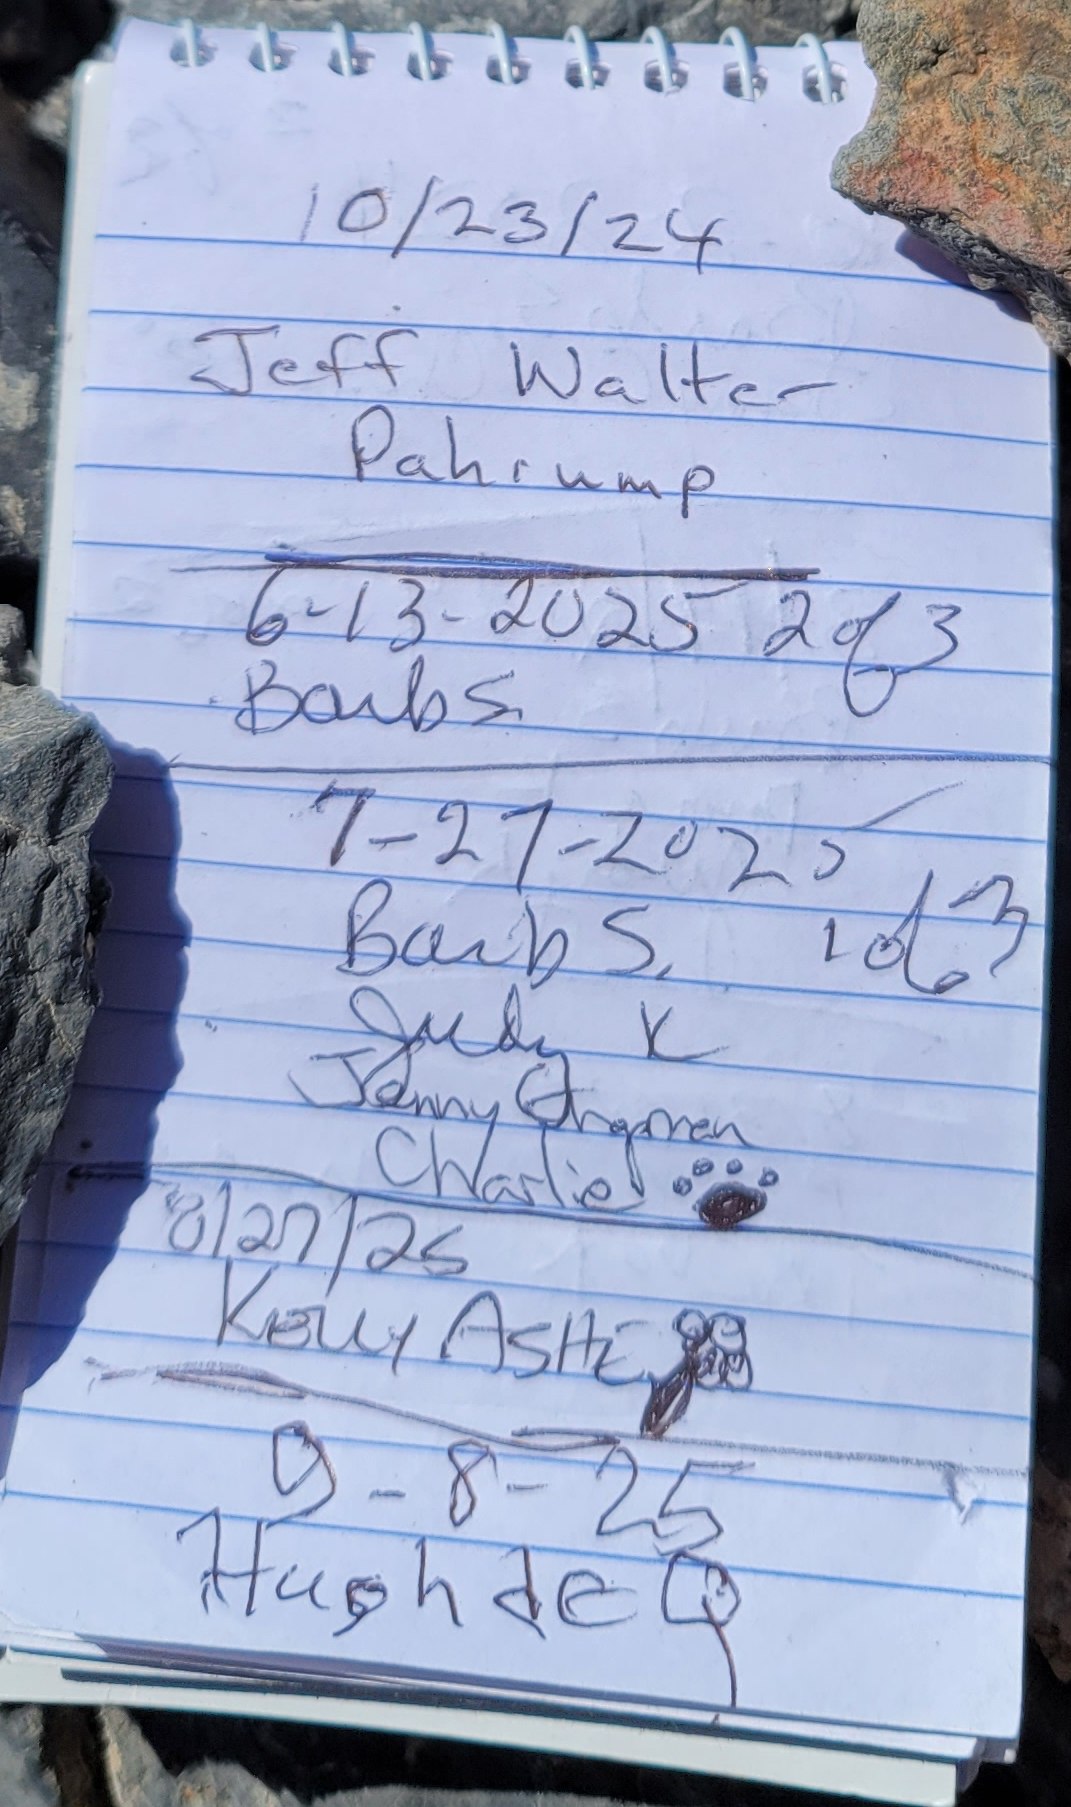 10/23/24
Jeff Walter
Pahrump
6-13-2025 2 of 3
Barb S.
7-27-2025
Barb S. 1 of 3
Judy K
Jenny
Charlie
8/27/25
Kelly Ashe
9-8-25
Hugh de Q